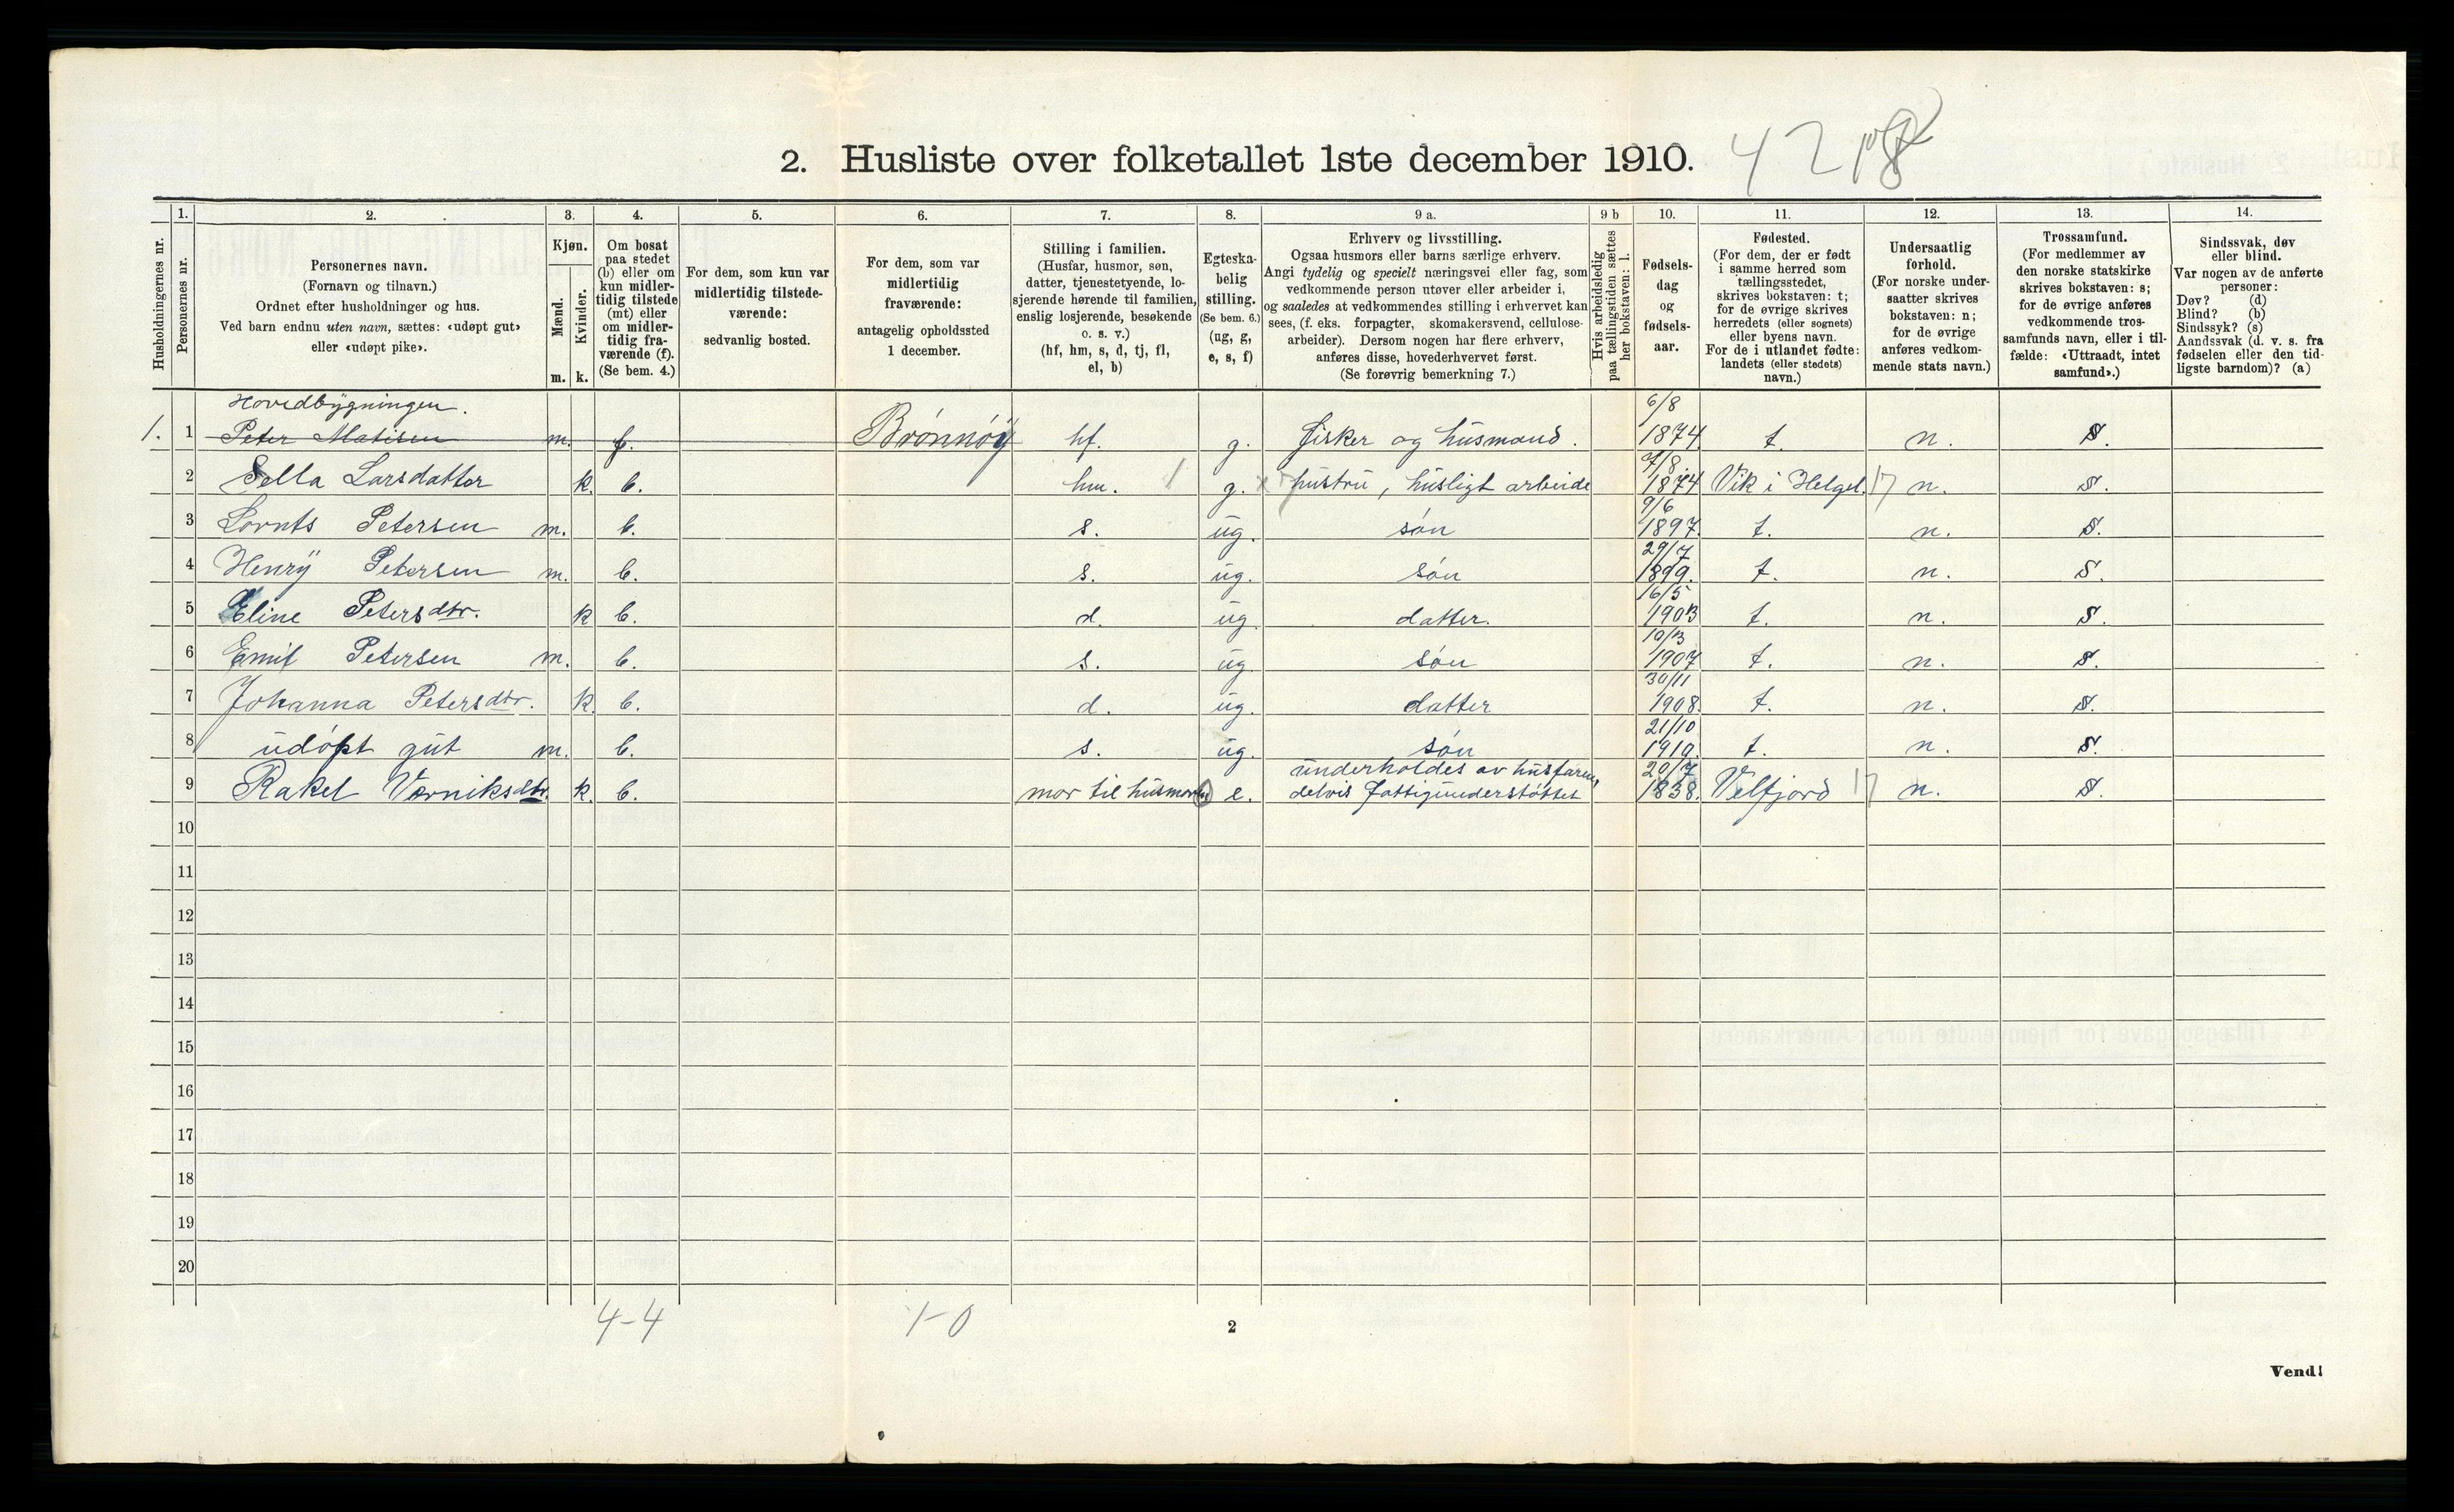 2. Husliste over folketallet 1ste december 1910. 42
1. 2. 3. 4. 5. 6. 7. 8. 9 a. 9 b 10. 11. 12. 13. 14.
Husholdningernes nr.
Personernes nr.
Personernes navn.
(Fornavn og tilnavn.)
Ordnet efter husholdninger og hus.
Ved barn endnu uten navn, sættes: «udøpt gut»
eller «udøpt pike».
Kjøn.
Mænd.
Kvinder.
m. k.
Om bosat
paa stedet
(b) eller om
kun midler-
tidig tilstede
(mt) eller
om midler-
tidig fra-
værende (f).
(Se bem. 4.)
For dem, som kun var
midlertidig tilstede-
værende:
sedvanlig bosted.
For dem, som var
midlertidig
fraværende:
antagelig opholdssted
1 december.
Stilling i familien.
(Husfar, husmor, søn,
datter, tjenestetyende, lo-
sjerende hørende til familien,
enslig losjerende, besøkende
o. s. v.)
(hf, hm, s, d, tj, fl,
el, b)
Egteska-
belig
stilling.
(Se bem. 6.)
(ug, g,
e, s, f)
Erhverv og livsstilling.
Ogsaa husmors eller barns særlige erhverv.
Angi tydelig og specielt næringsvei eller fag, som
vedkommende person utøver eller arbeider i,
og saaledes at vedkommendes stilling i erhvervet kan
sees, (f. eks. forpagter, skomakersvend, cellulose-
arbeider). Dersom nogen har flere erhverv,
anføres disse, hovederhvervet først.
(Se forøvrig bemerkning 7.)
Hvis arbeidsledig
paa tællingstiden sættes
her bokstaven: l.
Fødsels-
dag
og
fødsels-
aar.
Fødested.
(For dem, der er født
i samme herred som
tællingsstedet,
skrives bokstaven: t;
for de øvrige skrives
herredets (eller sognets)
eller byens navn.
For de i utlandet fødte:
landets (eller stedets)
navn.)
Undersaatlig
forhold.
(For norske under-
saatter skrives
bokstaven: n;
for de øvrige
anføres vedkom-
mende stats navn.)
Trossamfund.
(For medlemmer av
den norske statskirke
skrives bokstaven: s;
for de øvrige anføres
vedkommende tros-
samfunds navn, eller i til-
fælde: «Uttraadt, intet
samfund».)
Sindssvak, døv
eller blind.
Var nogen av de anførte
personer:
Døv? (d)
Blind? (b)
Sindssyk? (s)
Aandssvak (d. v. s. fra
fødselen eller den tid-
ligste barndom)? (a)
Hovedbygningen. 6/8
1. 1 Peter Matisen m. f. Brønnøy hf. g. fisker og husmand. 1874 t. n. S.
7/8
2 Sella Larsdatter k. b. hm. g. hustru, husligt arbeide 1874 Vik i Helgel. 17 n. S.
9/6
3 Lornts Petersen m. b. s. ug. søn 1897. t. n. S.
29/7
4 Henry Petersen m. b. s. ug. søn 1899. t. n. S.
16/5
5 Eline Petersdtr. k b. d. ug. datter. 1903 t. n. S.
10/3
6 Emil Petersen m. b. s. ug. søn 1907 t. n. S.
30/11
7 Johanna Petersdtr. k. b. d. ug. datter 1908. t. n. S.
21/10
8 udøpt gut m. b. s. ug. søn 1910. t. n. S.
underholdes av husfaren, 20/7
9 Rakel Værniksdtr. k. b. mor til husmoren e. delvis fattigunderstøttet 1838. Velfjord 17 n. S.
10
11
12
13
14
15
16
17
18
19
20
4-4 1-0
2
Vend!